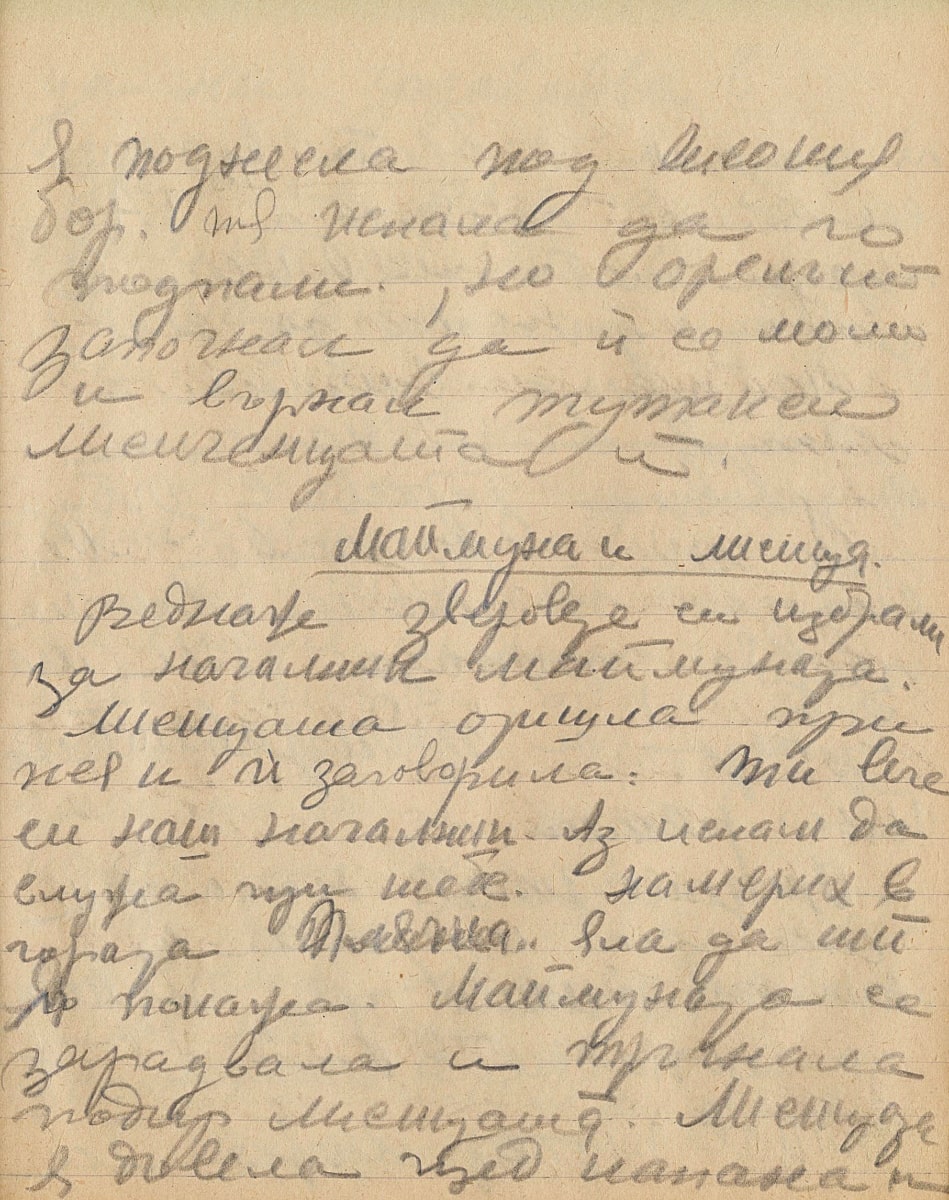 я поднесла под високия
бор. тя искала да го
подпали, но орелът
започнал да ѝ се моли
и върнал тутакси
лисичетата ѝ.
Маймуна и лисица.
Веднаж зверовете си избрали
за началник маймуната.
Лисицата отишла при
нея и ѝ заговорила: ти вече
си наш началник. Аз искам да
служа при тебе. намерих в
гората. Ела да ти
го покажа. Маймуната се
зарадвала и тръгнала
подир лисицата. Лисицата
я довела пред капана и